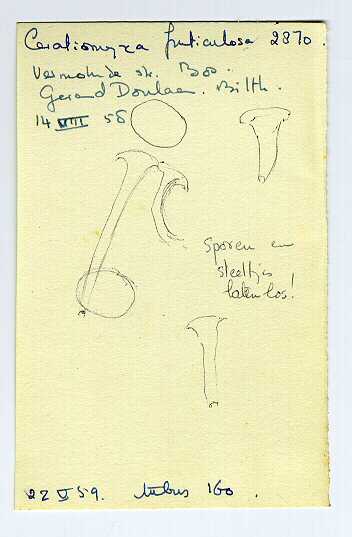 Ceratiomyxa fruticulosa 2870.
Vermolmde str. Bos.
Gerard Doulaan. Bilth.
14 VIII 58
Sporen en
steeltjes
laten los!
22 V 59. tubus 160.